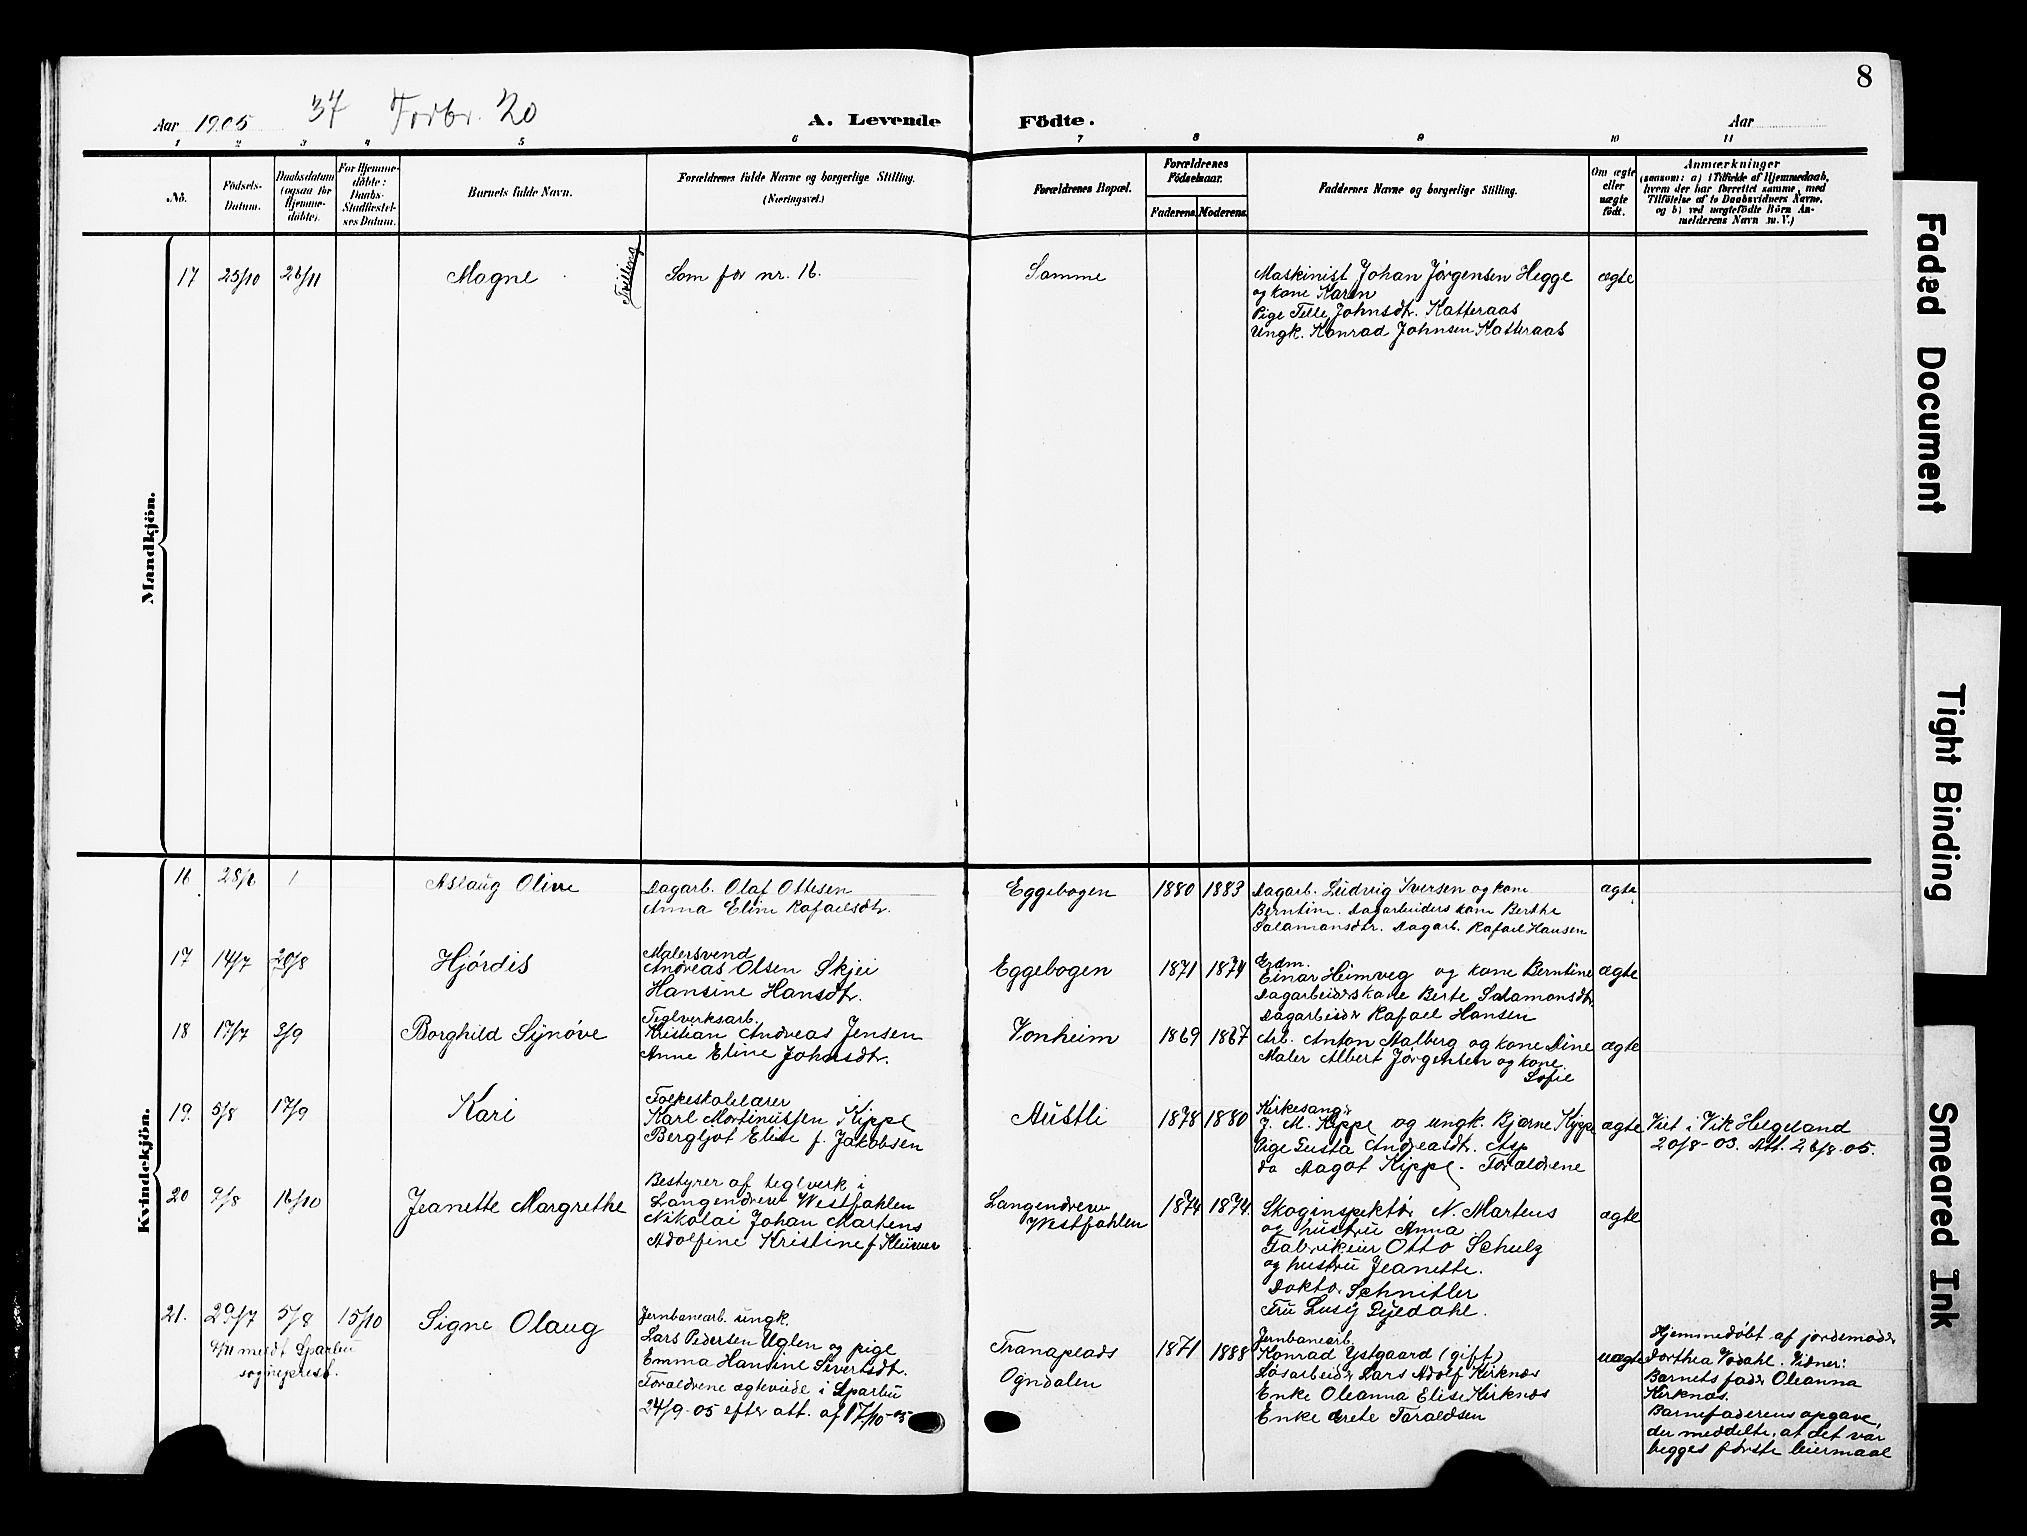 8
Aar 1905 37 Fordr. 20 A. Levende Födte. Aar
1 2 3 4 5 6 7 8 9 10 11
No.
Födsels-
Datum.
Daabsdatum
(ogsaa for
Hjemme-
döbte).
For Hjemme-
döbte:
Daabs-
Stadfæstel-
ses Datum.
Barnets fulde Navn.
Forældrenes fulde Navne og borgerlige Stilling.
(Næringsvei.)
Forældrenes Bopæl.
Forældrenes
Födselsaar.
Faderens. Moderens.
Faddernes Navne og borgerlige Stilling.
Om ægte
eller
uægte
födt.
Anmærkninger
(saasom: a) i Tilfælde af Hjemmedaab,
hvem der har forrettet samme, med
Tilföielse af to Daabsvidners Navne,
og b) ved uægtefödte Börn An-
melderens Navn m. V.)
Mandkjön.
17 25/10 26/11 Magne Tvilling Som for nr. 16. Samme
Maskinist Johan Jørgensen Hegge
og kone Karen
Pige Tille Johnsdt. Katteraas
Ungk. Konrad Johnsen Katteraas
ægte
Kvindekjön.
16 28/6 1 Aslaug Oline
Dagarb. Olaf Ottesen
Anna Elin Rafaelsdt.
Eggebogen 1880 1883
Dagarb. Ludvig Iversen og kone
Berntine. Dagarbeiders kone Berthe
Salamonsdtr. Dagarb. Rafael Hansen
ægte
17 14/7 20/8 Hjördis
Malersvend
Andreas Olsen Skjei
Hansine Hansdt.
Eggebogen 1871 1874
Grdm.
Einar Heimveg og kone Berntine
Dagarbeiderskone Berte Salamonsdt.
Dagarbeider Rafael Hansen
ægte
18 17/7 3/9 Borghild Synöve
Teglverksarb.
Kristian Andreas Jensen
Anne Eline Johnsdt.
Vonheim 1869 1867
Arb. Anton Aalberg og kone Nine
Maler Albert Jørgensen og kone
Sofie
ægte
19. 5/8 17/9 Kari
Folkeskolelærer
Karl Mortinussen Kippe
Bergljot Elise f. Jakobsen
Austli 1878 1880
Kirkesang.
J. M. Kippe og ungk. Bjarne Kippe
Pige Gusta Andreasdt. Asp
do Aagot Kippe. Forældrene
ægte
Viet i Vik Helgeland
20/8-03. Att. 26/8-05.
20 9/8 16/10 Jeanette Margrethe
Bestyrer af teglverk i
Langendreer Westfahlen
Nikolai Johan Martens
Adolfine Kristine f.
Langendreer
Westfahlen
1874 1874.
Skoginspektør N. Martens
og hustru Anna
Fabrikeier Otto Schulz
og hustru Jeanette.
Doktor Schnitler
Fru Lusy Gyedahl.
ægte
21. 29/7 5/8 15/10 Signe Olaug
meldt Sparbu
sogneprest.
Jernbanearb. ungk.
Lars Pedersen Uglen og pige
Emma Hansine Sivertsdt.
Forældrene ægteviede i Sparbu
24/9-05 efter att. af 17/10-05
Tranaplads
Ogndalen
1871 1888
Jernbanearb.
Konrad Ystgaard (gift)
Løsarbeider Lars Adolf Kirknæs
Enke Oleanna Elise Kirknæs
Enke Grete Taraldsen
uægte
Hjemmedøbt af jordemoder
Dorthea Vodahl. Vidner:
Barnets fader Oleanna
Kirknæs.
Barnefaderens opgave,
der meddelte, at det var
begges første leiermaal
Faded Document
Tight Binding
Smeared Ink